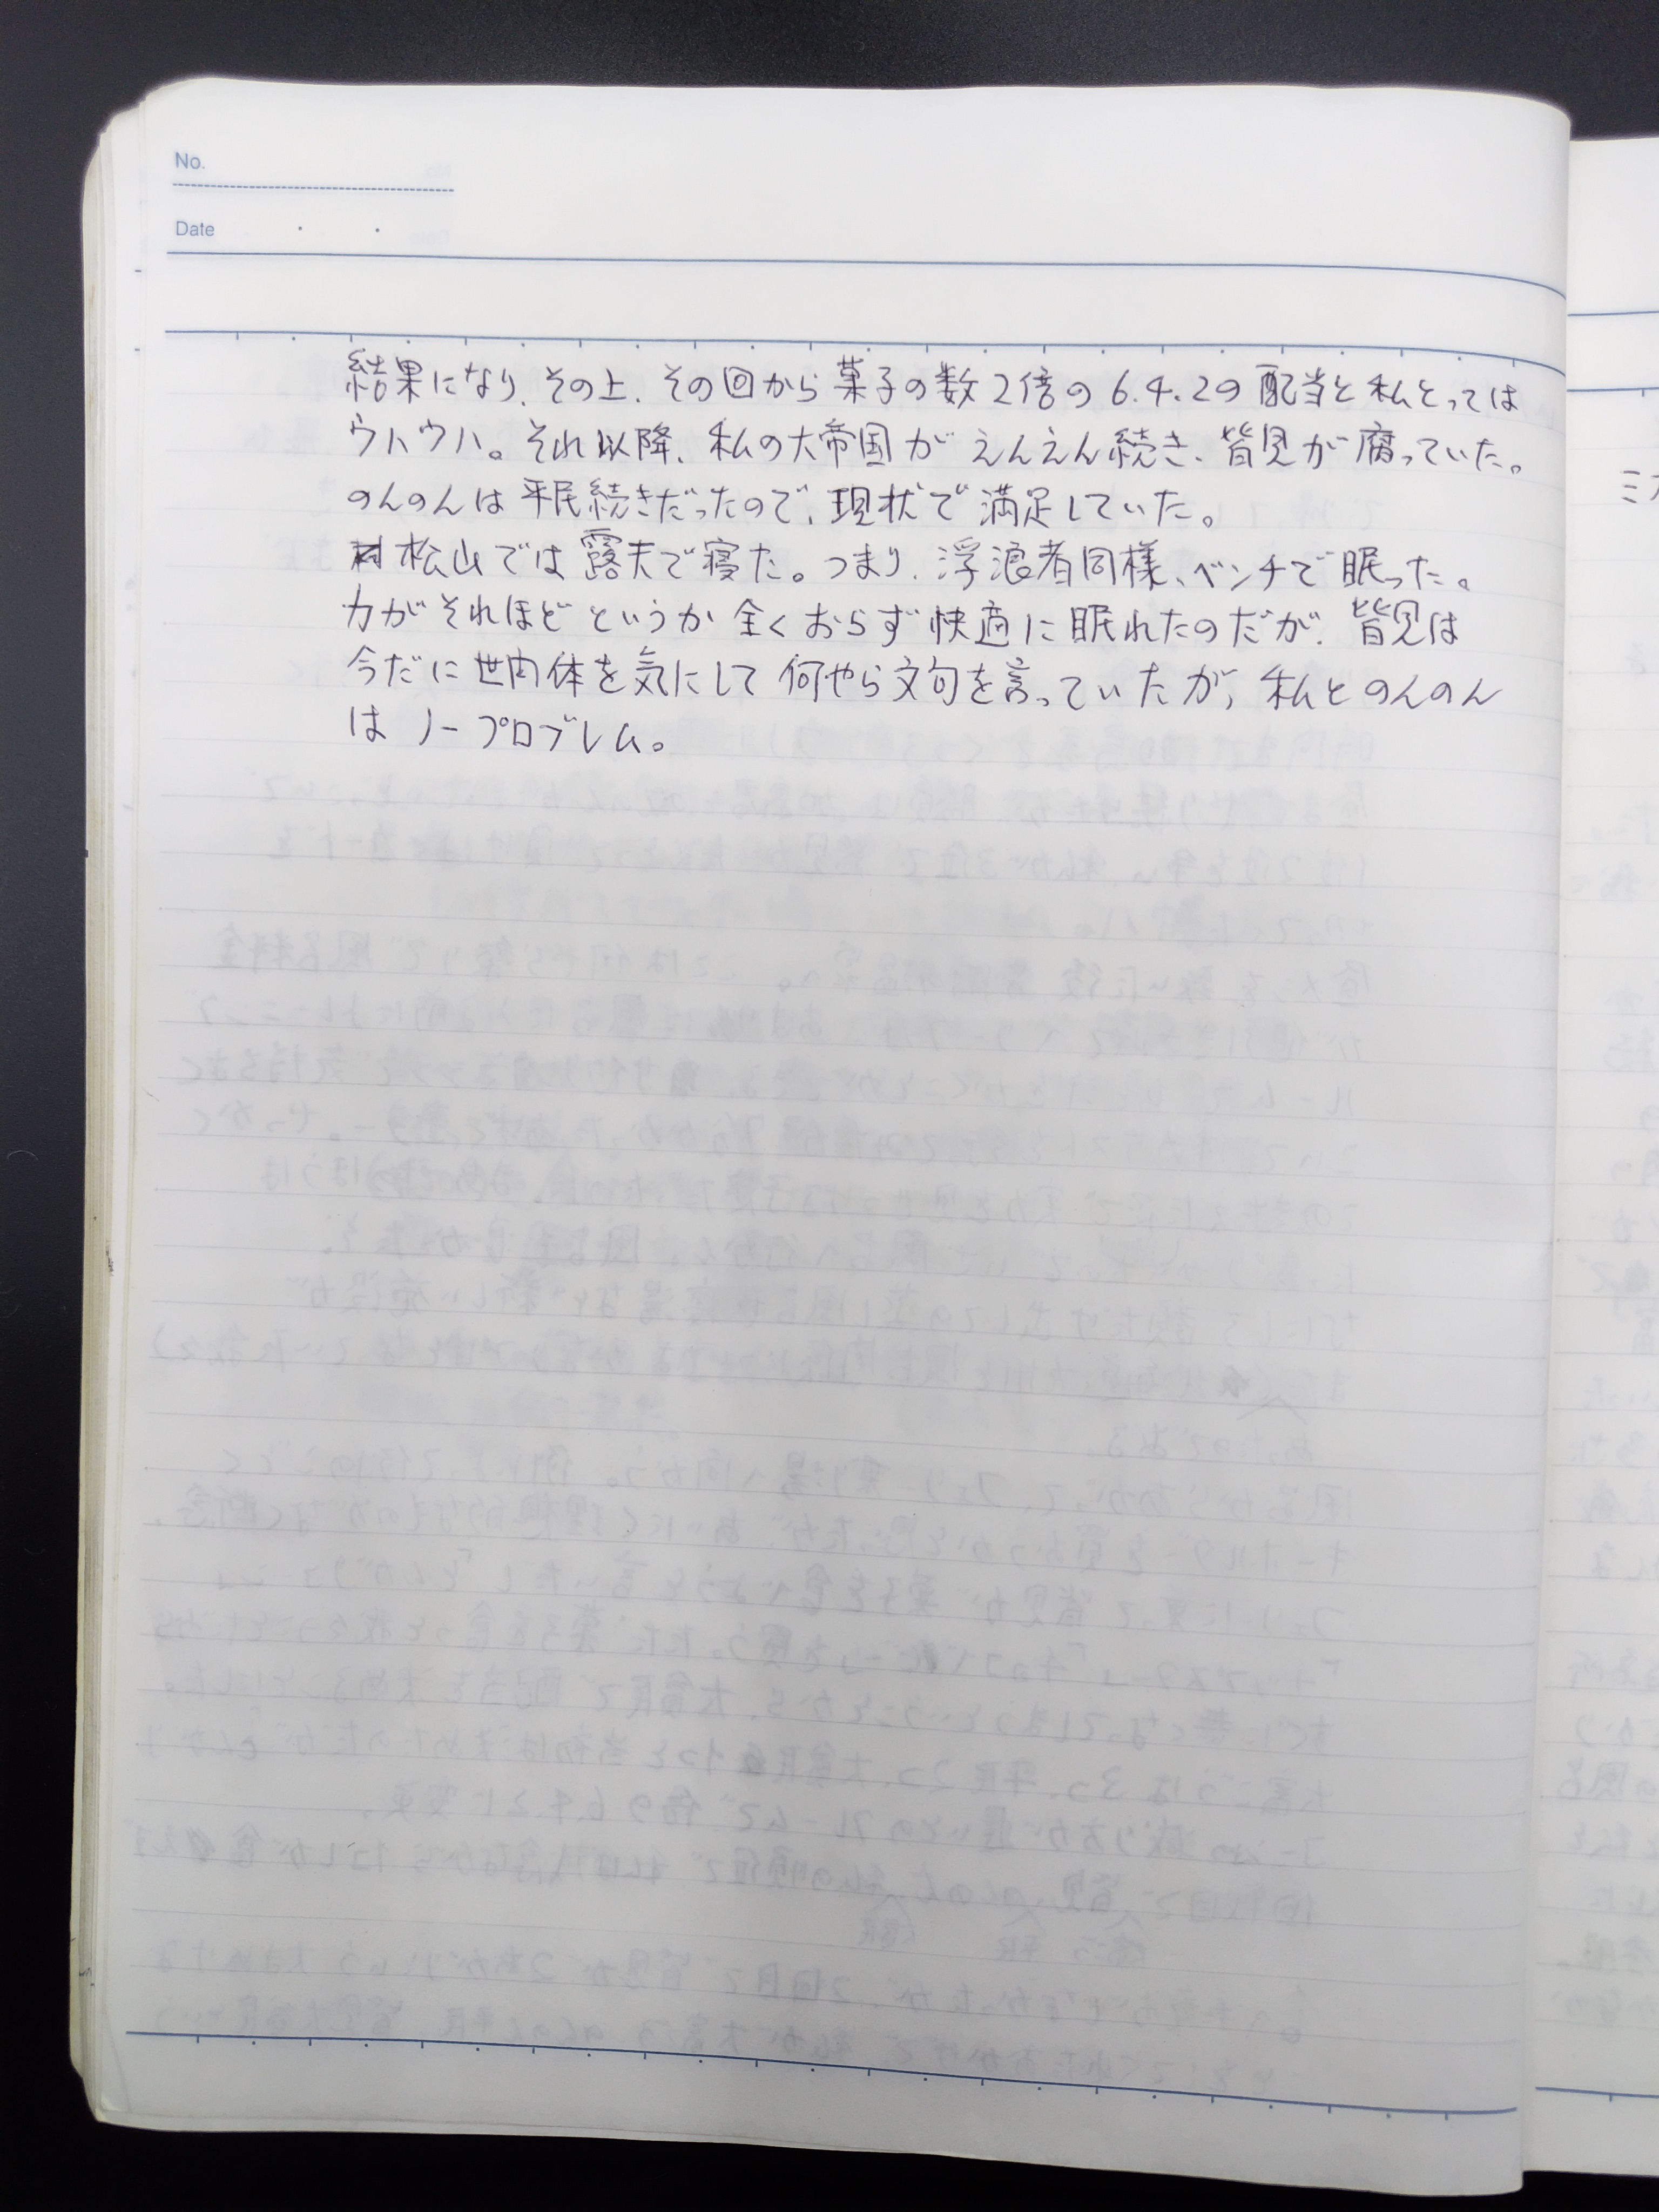 No.
Date
結果になり、その上、その回から菓子の数2倍の6.4.2の配当と私とっては
ウハウハ。それ以降、私の大帝国がえんえん続き、皆見が腐っていた。
のんのんは平民続きだったので、現状で満足していた。
松山では露天で寝た。つまり、浮浪者同様、ベンチで眠った。
力がそれほどというか全くおらず快適に眠れたのだが、皆見は
今だに世肉体を気にして何やら文句を言っていたが、私とのんのん
はノープロブレム。